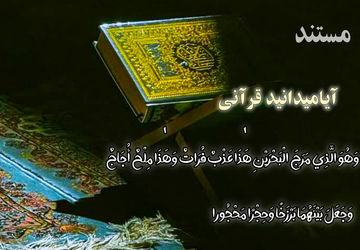 مستند
آیا میدانید قرآنی
وَهُوَ الَّذِي مَرَجَ الْبَحْرَيْنِ هَذَا عَذْبٌ فُرَاتٌ وَهَذَا مِلْحٌ أُجَاجٌ
وَجَعَلَ بَيْنَهُمَا بَرْزَخًا وَحِجْرًا مَحْجُورًا